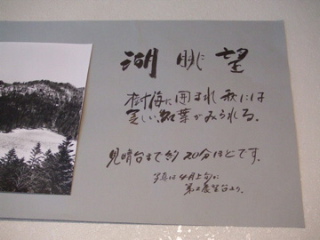 湖 眺 望
樹海に囲まれ 秋には
美しい紅葉がみられる。
見晴台まで約20分ほどです。
写真は4月上旬に